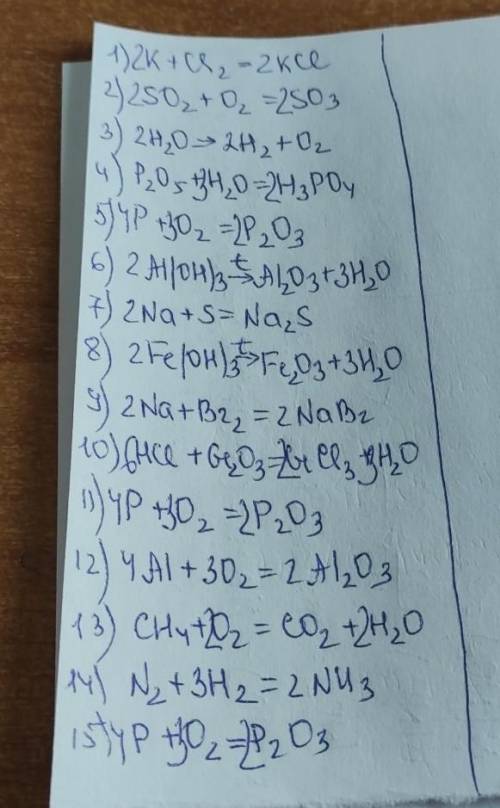 1) 2K + Cl2 = 2KCl
2) 2SO2 + O2 = 2SO3
3) 2H2O → 2H2 + O2
4) P2O5 + 3H2O = 2H3PO4
5) 4P + 3O2 = 2P2O3
6) 2Al(OH)3 t→ Al2O3 + 3H2O
7) 2Na + S = Na2S
8) 2Fe(OH)3 t→ Fe2O3 + 3H2O
9) 2Na + Br2 = 2NaBr
10) 6HCl + Cr2O3 = 2CrCl3 + 3H2O
11) 4P + 3O2 = 2P2O3
12) 4Al + 3O2 = 2Al2O3
13) CH4 + 2O2 = CO2 + 2H2O
14) N2 + 3H2 = 2NH3
15) 4P + 3O2 = 2P2O3